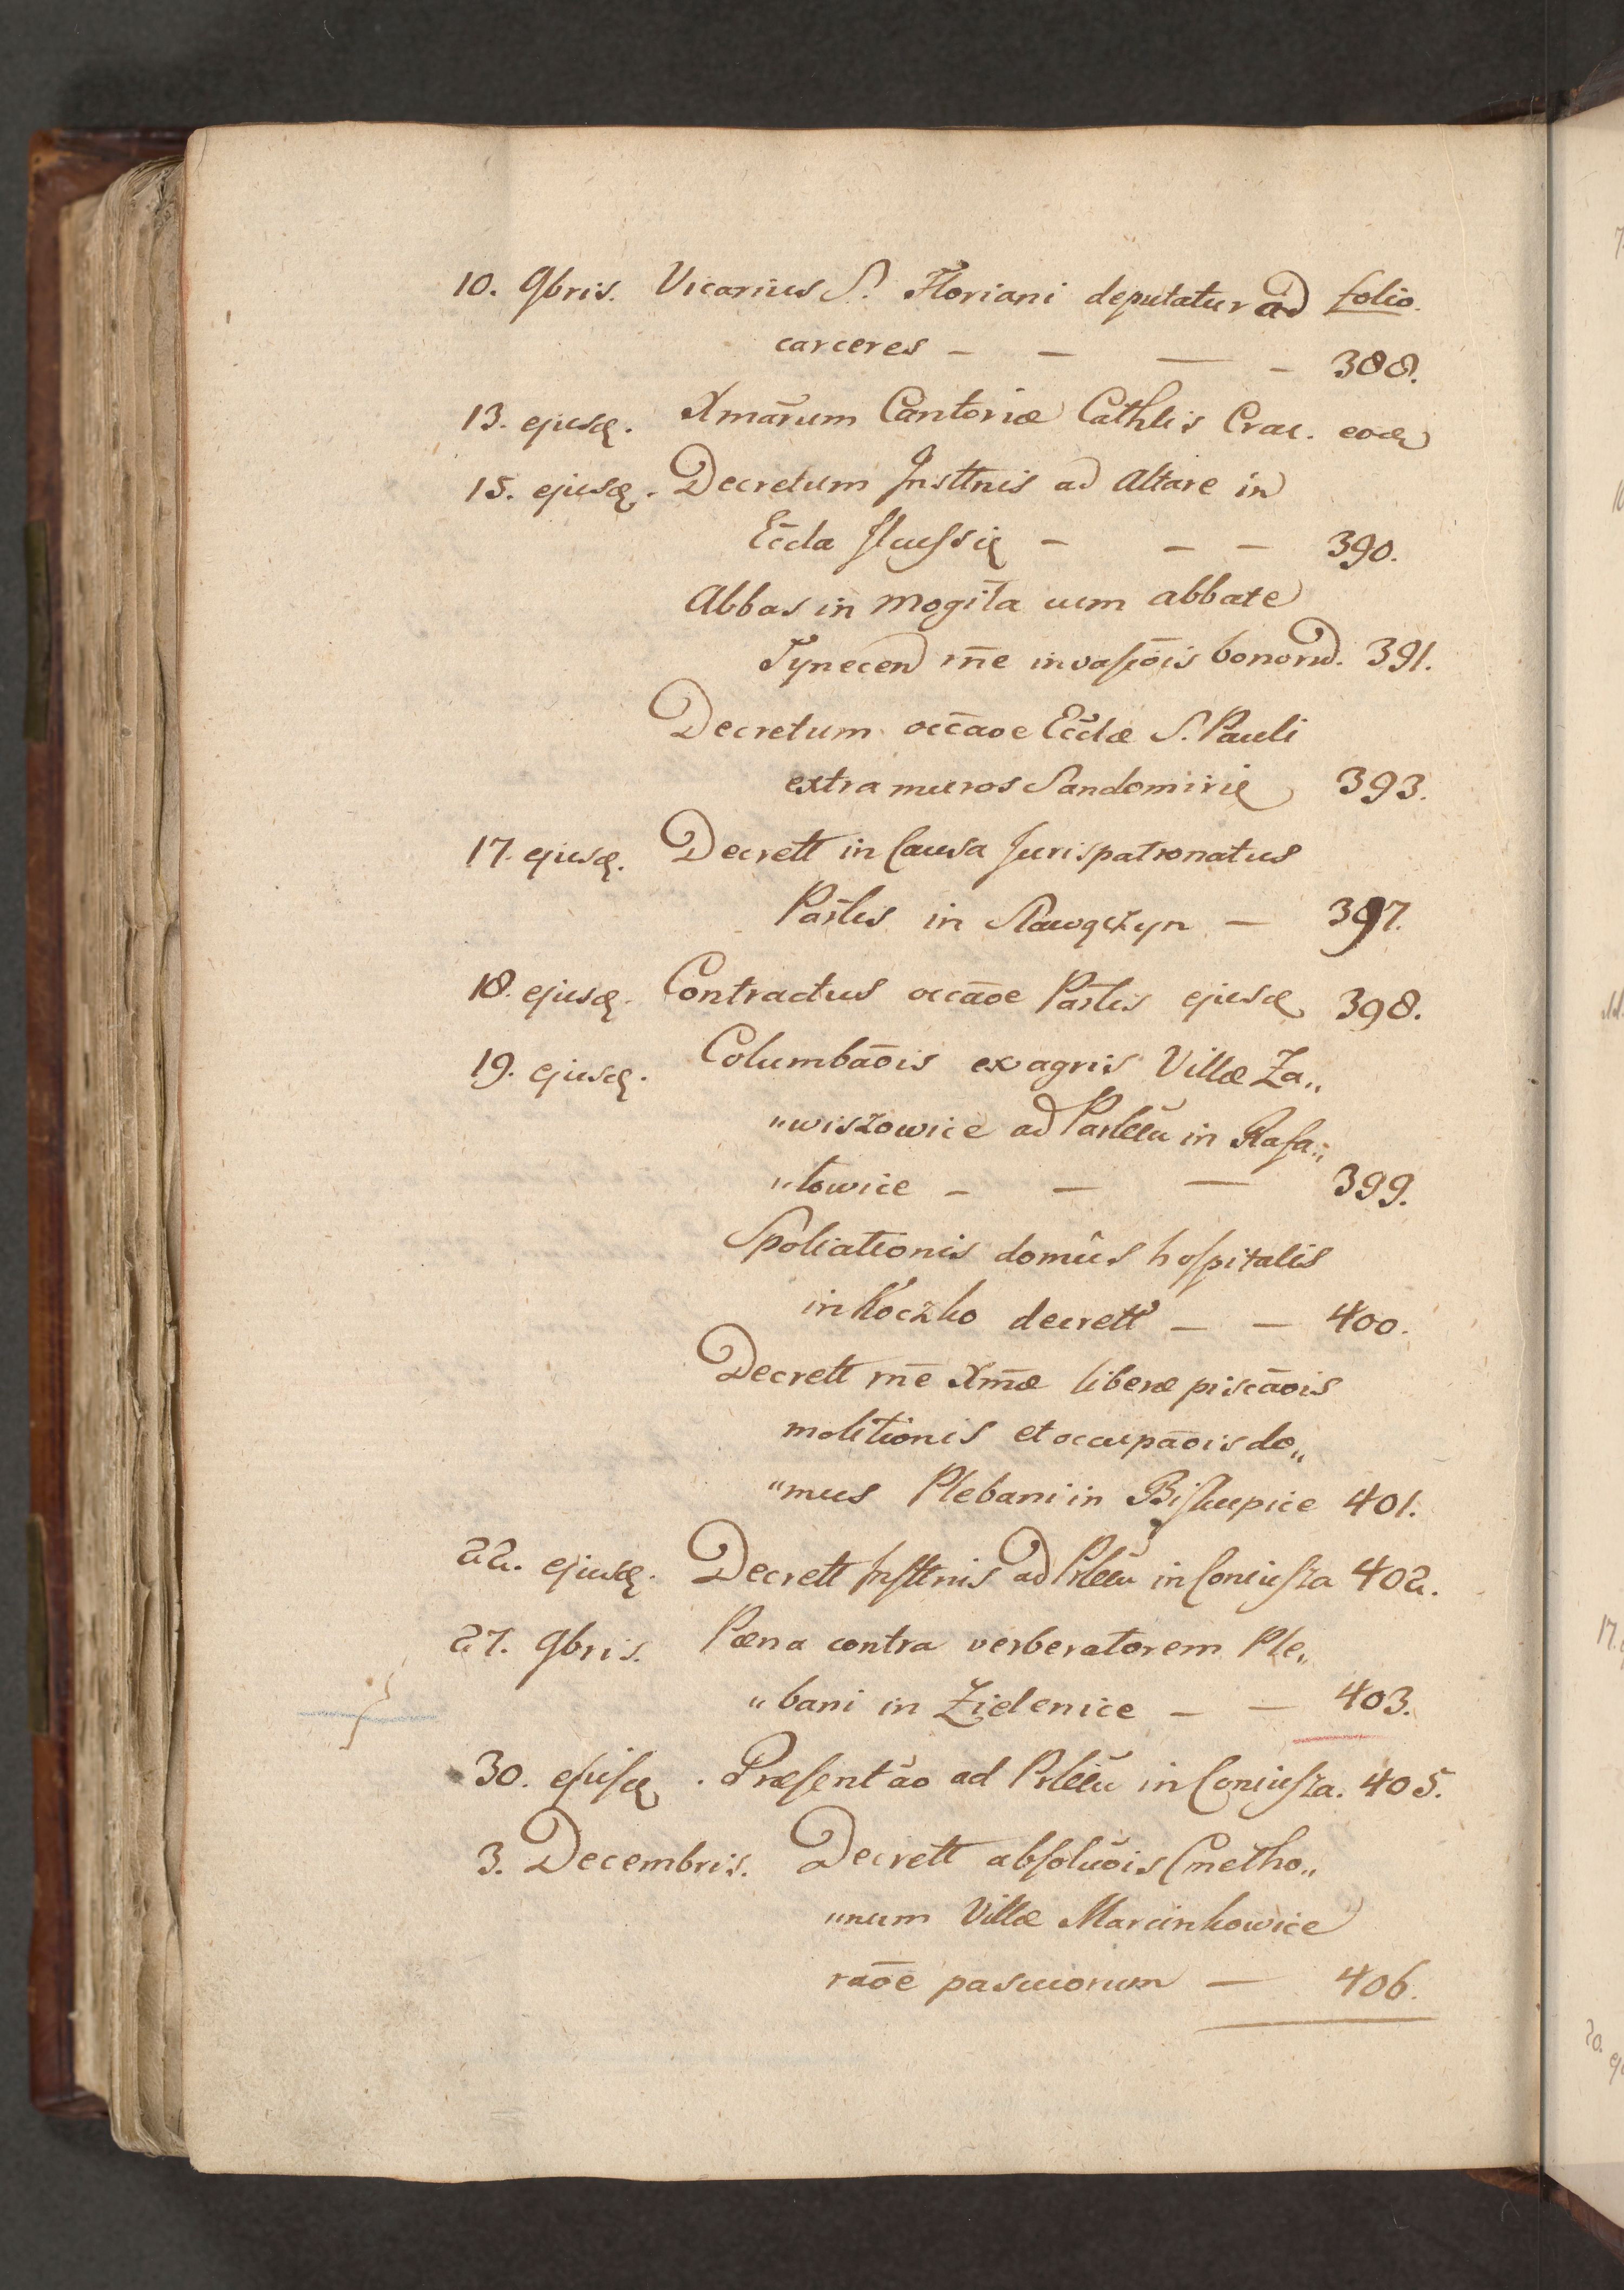 10. 9bris. Vicarius S. Floriani deputatur ad folio.
carceres - - - - 388.
13. ejusdę. Xmārum Cantoriæ Cathlis Crac. eodę
15. ejusdę. Decretum Insttnis ad Altare in
Eccla Ilkussię - - - 390.
Abbas in Mogiła cum abbate
Tynecen rñe invasiōis bonorū. 391.
Decretum occãoe Ecclæ S. Pauli
extra muros Sandomirię 393.
17. ejusdę. Decrett in Causa Jurispatronatus
Parlis in Sławęczyn - 397.
18. ejusdę. Contractus occãoe Parlis ejusdę 398.
19. ejusdę. Columbãois ex agris Villæ Za„
„wiszowice ad Parlēū in Rafa„
„łowice - - - 399.
Spoliationis domûs hospitalis
in Koczko decrett - - 400.
Decrett rñe Xmæ liberæ piscãois
molitionis et occupãois do„
„mus Plebani in Biskupice 401.
22. ejusdę. Decrett Insttnis ad Prlēū in Coniusza 402.
27. 9bris. Pæna contra verberatorem Ple„
„bani in Zielenice - - 403.
30. ejusdę. Præsentão ad Prlēū in Coniusza. 405.
3. Decembris. Decrett absolũois Cmetho„
„num Villæ Marcinkowice
raõe pascuorum - 406.